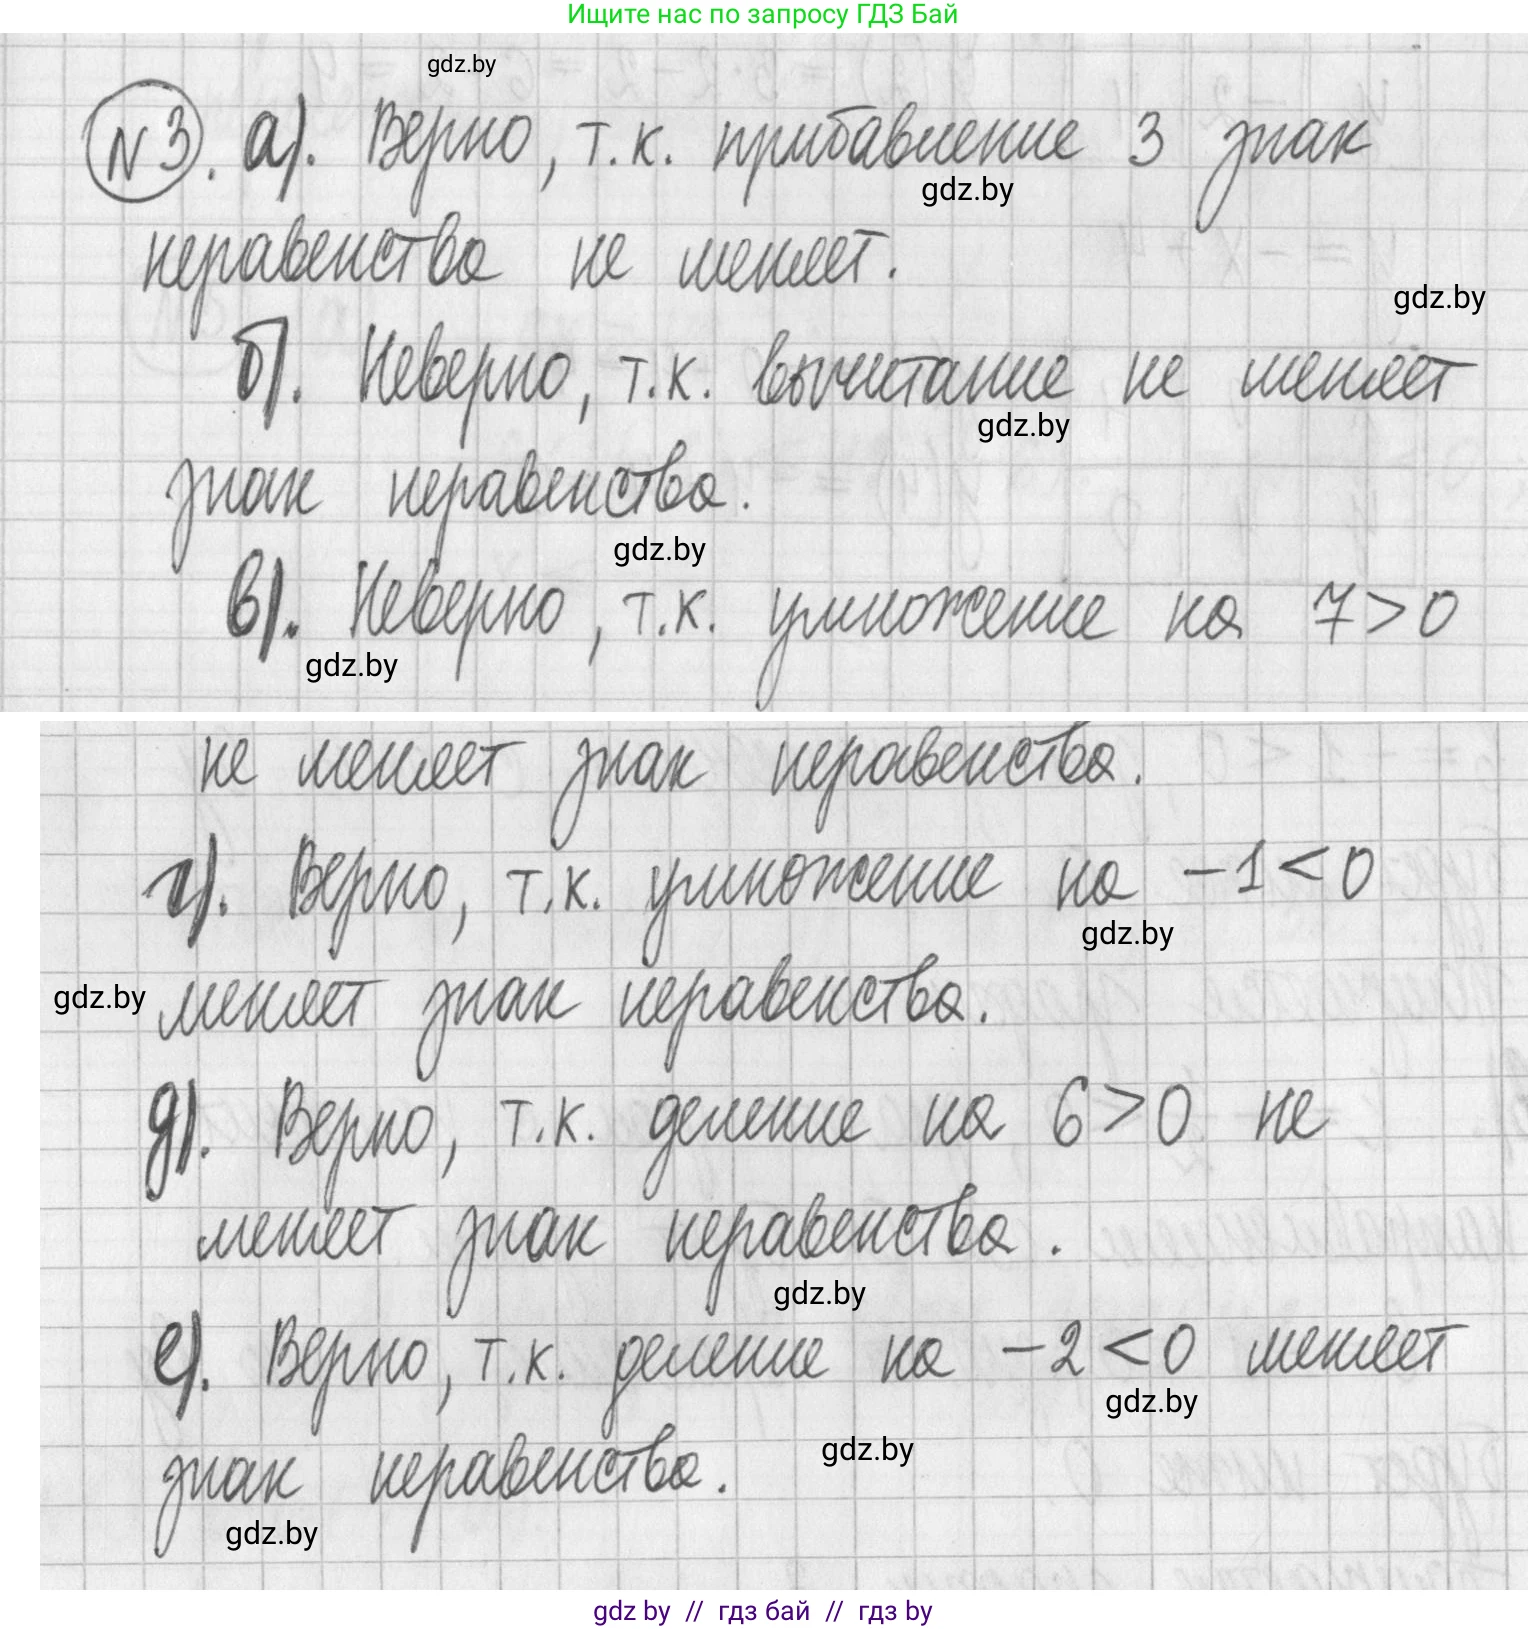 Ищите нас по запросу ГДЗ Бай
gdz.by
№3. а). Верно, т.к. прибавление 3 знак
gdz.by
неравенства не меняет.
gdz.by
б). Неверно, т.к. вычитание не меняет
gdz.by
знак неравенства.
gdz.by
в). Неверно, т.к. умножение на 7>0
gdz.by
не меняет знак неравенства.
г). Верно, т.к. умножение на -1<0
gdz.by
gdz.by
меняет знак неравенства.
д). Верно, т.к. деление на 6>0 не
меняет знак неравенства.
gdz.by
е). Верно, т.к. деление на -2<0 меняет
gdz.by
gdz.by
знак неравенства.
gdz.by
gdz by // гдз бай // гдз by